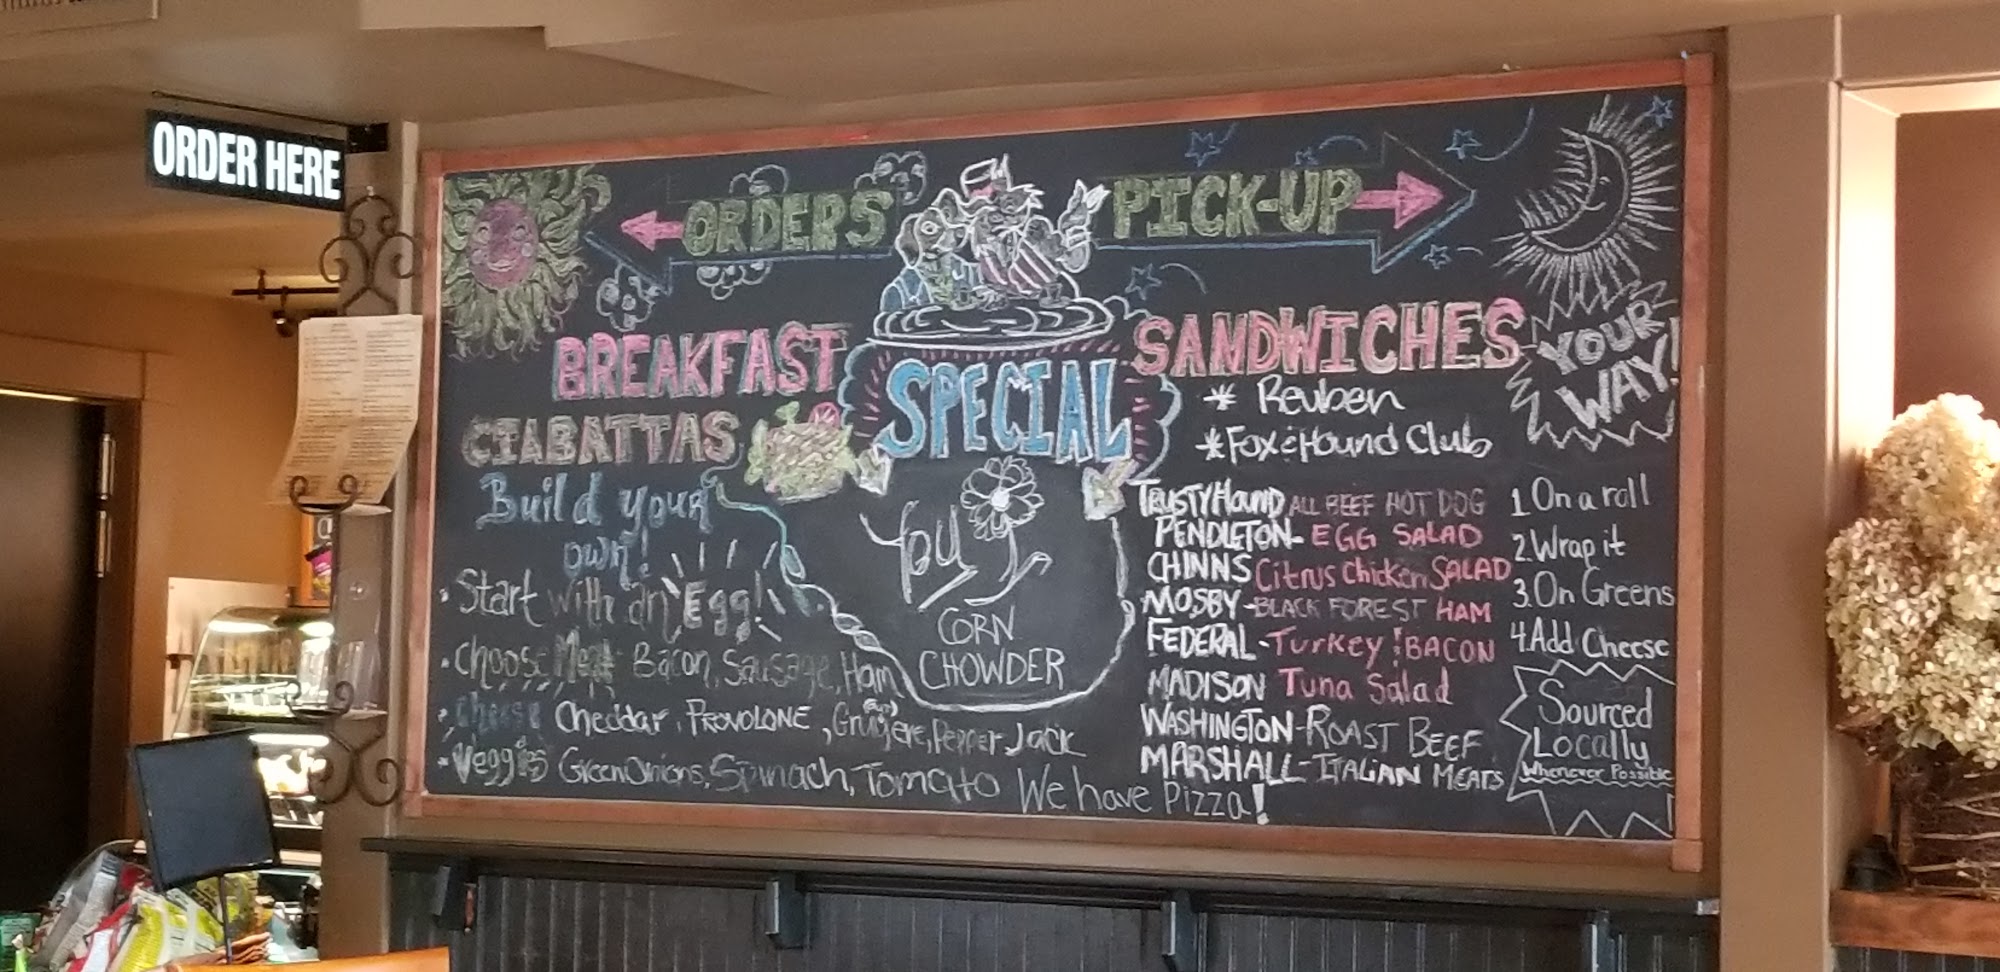 ORDER HERE
ORDERS
PICK-UP
BREAKFAST
CIABATTAS
Build your
own!
• Start with an Egg!
• Choose Meat Bacon, Sausage, Ham
• Cheese Cheddar, PROVOLONE, Gruyere, Pepper Jack
• Veggies Green Onions, Spinach, Tomato We have Pizza!
SPECIAL
You
CORN
CHOWDER
SANDWICHES
* Reuben
* Fox & Hound Club
TRUSTY Hound ALL BEEF HOT DOG
PENDLETON- EGG SALAD
CHINNS Citrus Chicken SALAD
MOSBY-BLACK FOREST HAM
FEDERAL-Turkey & BACON
MADISON Tuna Salad
WASHINGTON-ROAST BEEF
MARSHALL-ITALIAN MEATS
YOUR
WAY!
1. On a roll
2. Wrap it
3. On Greens
4. Add Cheese
Sourced
Locally
Whenever Possible